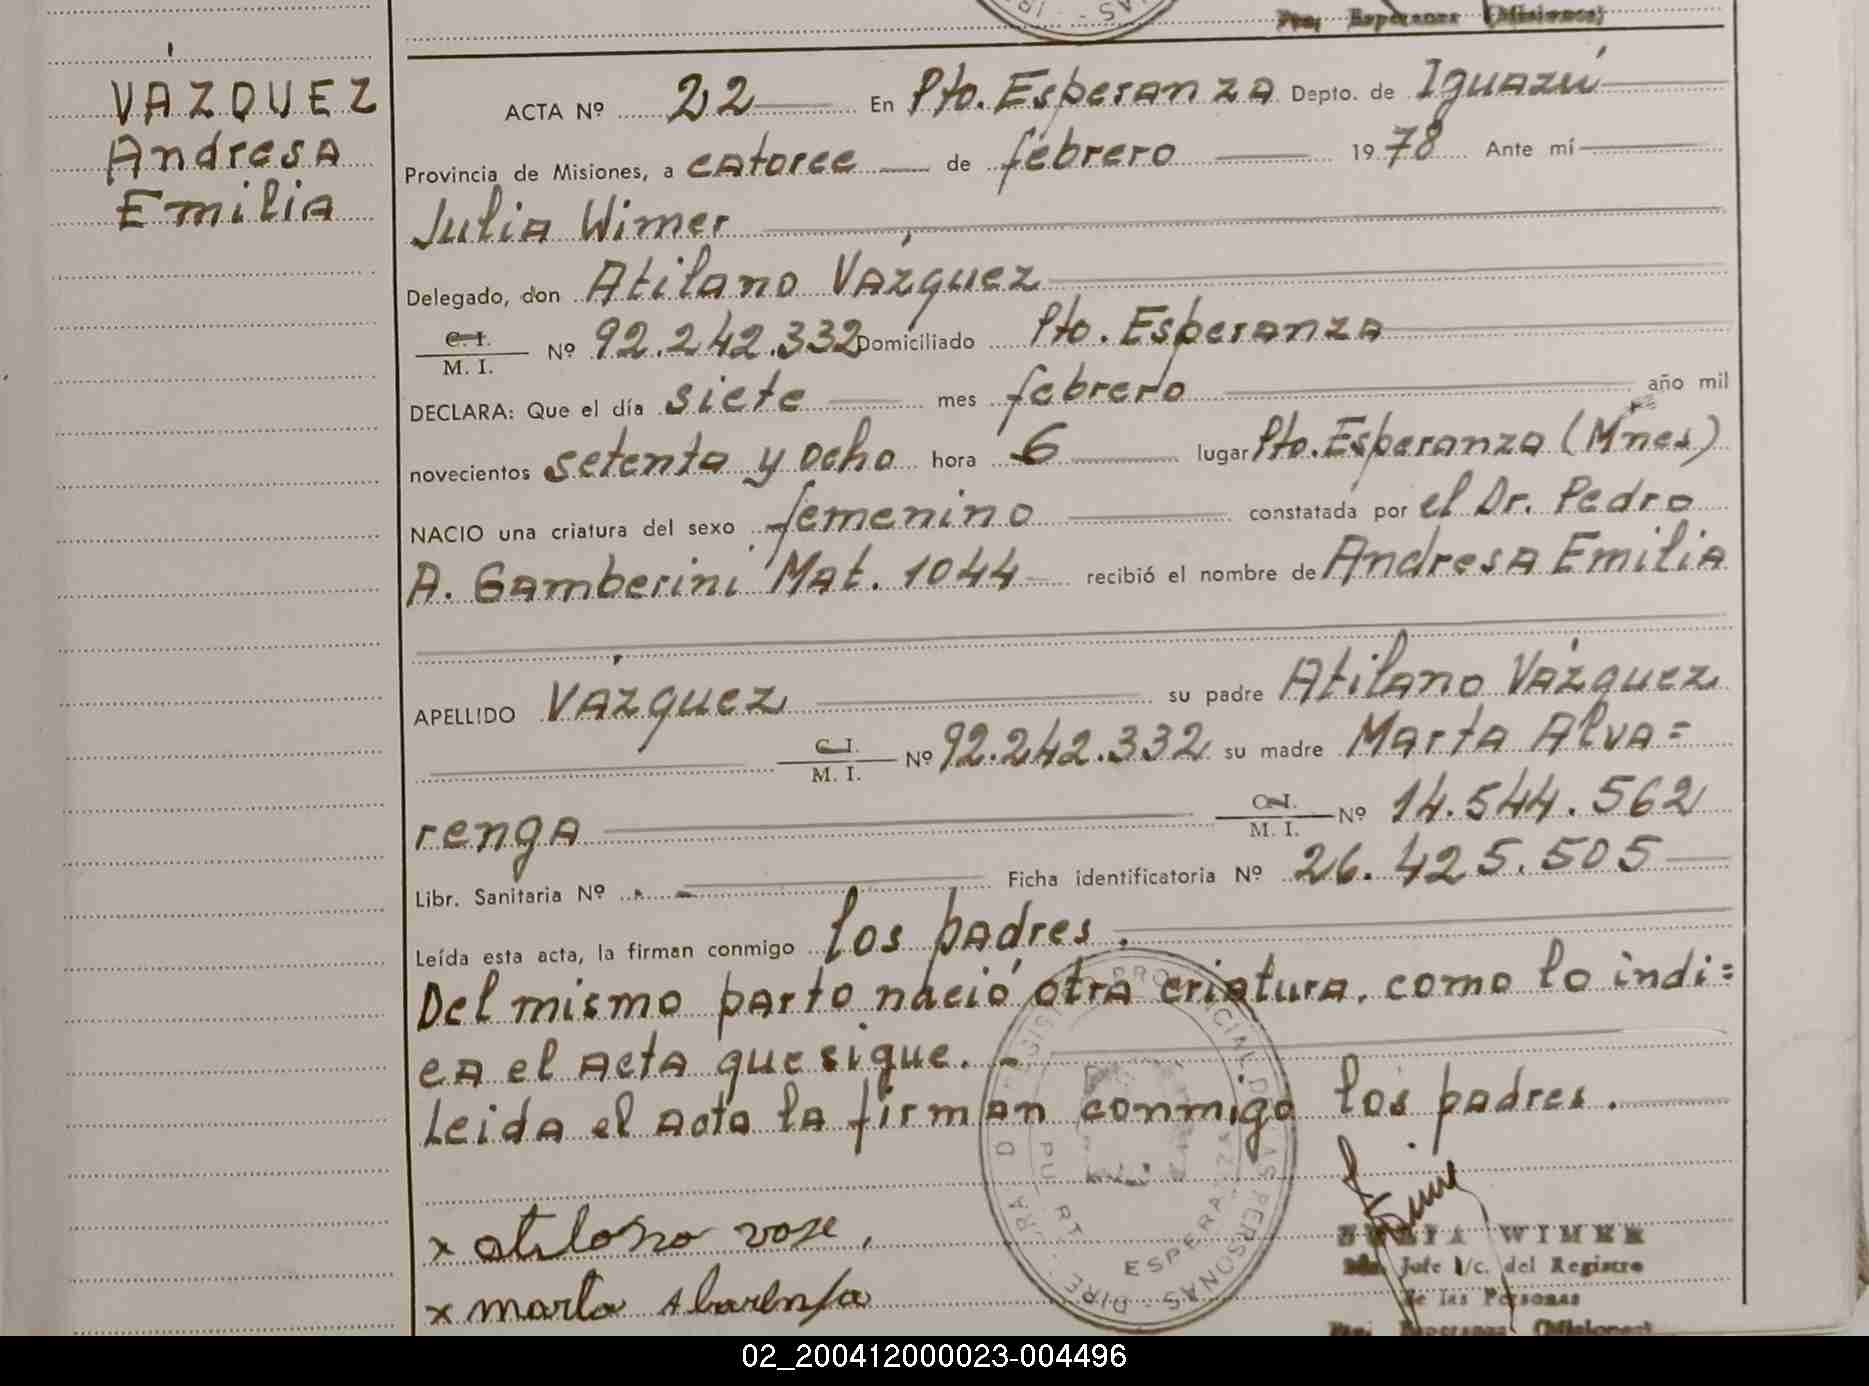 Pto. Esperanza (Misiones)
VÁZQUEZ
Andresa
Emilia
ACTA Nº 22 En Pto. Esperanza Depto. de Iguazú
Provincia de Misiones, a catorce de febrero 1978 Ante mí
Julia Wimer
Delegado, don Atilano Vázquez
C. I. / M. I. Nº 92.242.332 Domiciliado Pto. Esperanza
DECLARA: Que el día siete mes febrero año mil
novecientos setenta y ocho hora 6 lugar Pto. Esperanza (Mnes)
NACIO una criatura del sexo femenino constatada por el Dr. Pedro
A. Gamberini Mat. 1044 recibió el nombre de Andresa Emilia
APELLIDO Vázquez su padre Atilano Vázquez
C. I. / M. I. Nº 92.242.332 su madre Marta Alva=
renga C. I. / M. I. Nº 14.544.562
Libr. Sanitaria Nº - Ficha identificatoria Nº 26.425.505
Leída esta acta, la firman conmigo los padres.
Del mismo parto nació otra criatura, como lo indi=
ca el acta que sigue. -
Leida el acta la firman conmigo los padres.
x atilano vaze
x marta Abarenga
JULIA WIMER
Jefe I/c. del Registro
de las Personas
Pto. Esperanza (Misiones)
PROVINCIAL DE LAS PERSONAS - DIRE
PUERTO ESPERANZA
02_200412000023-004496